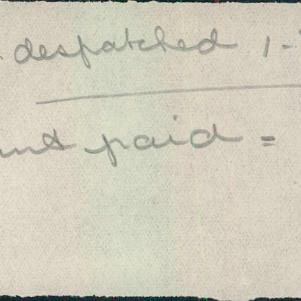 despatched 1-
paid =